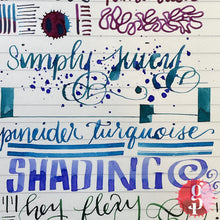 Simply
pineider turquoise
SHADING
hey flexy